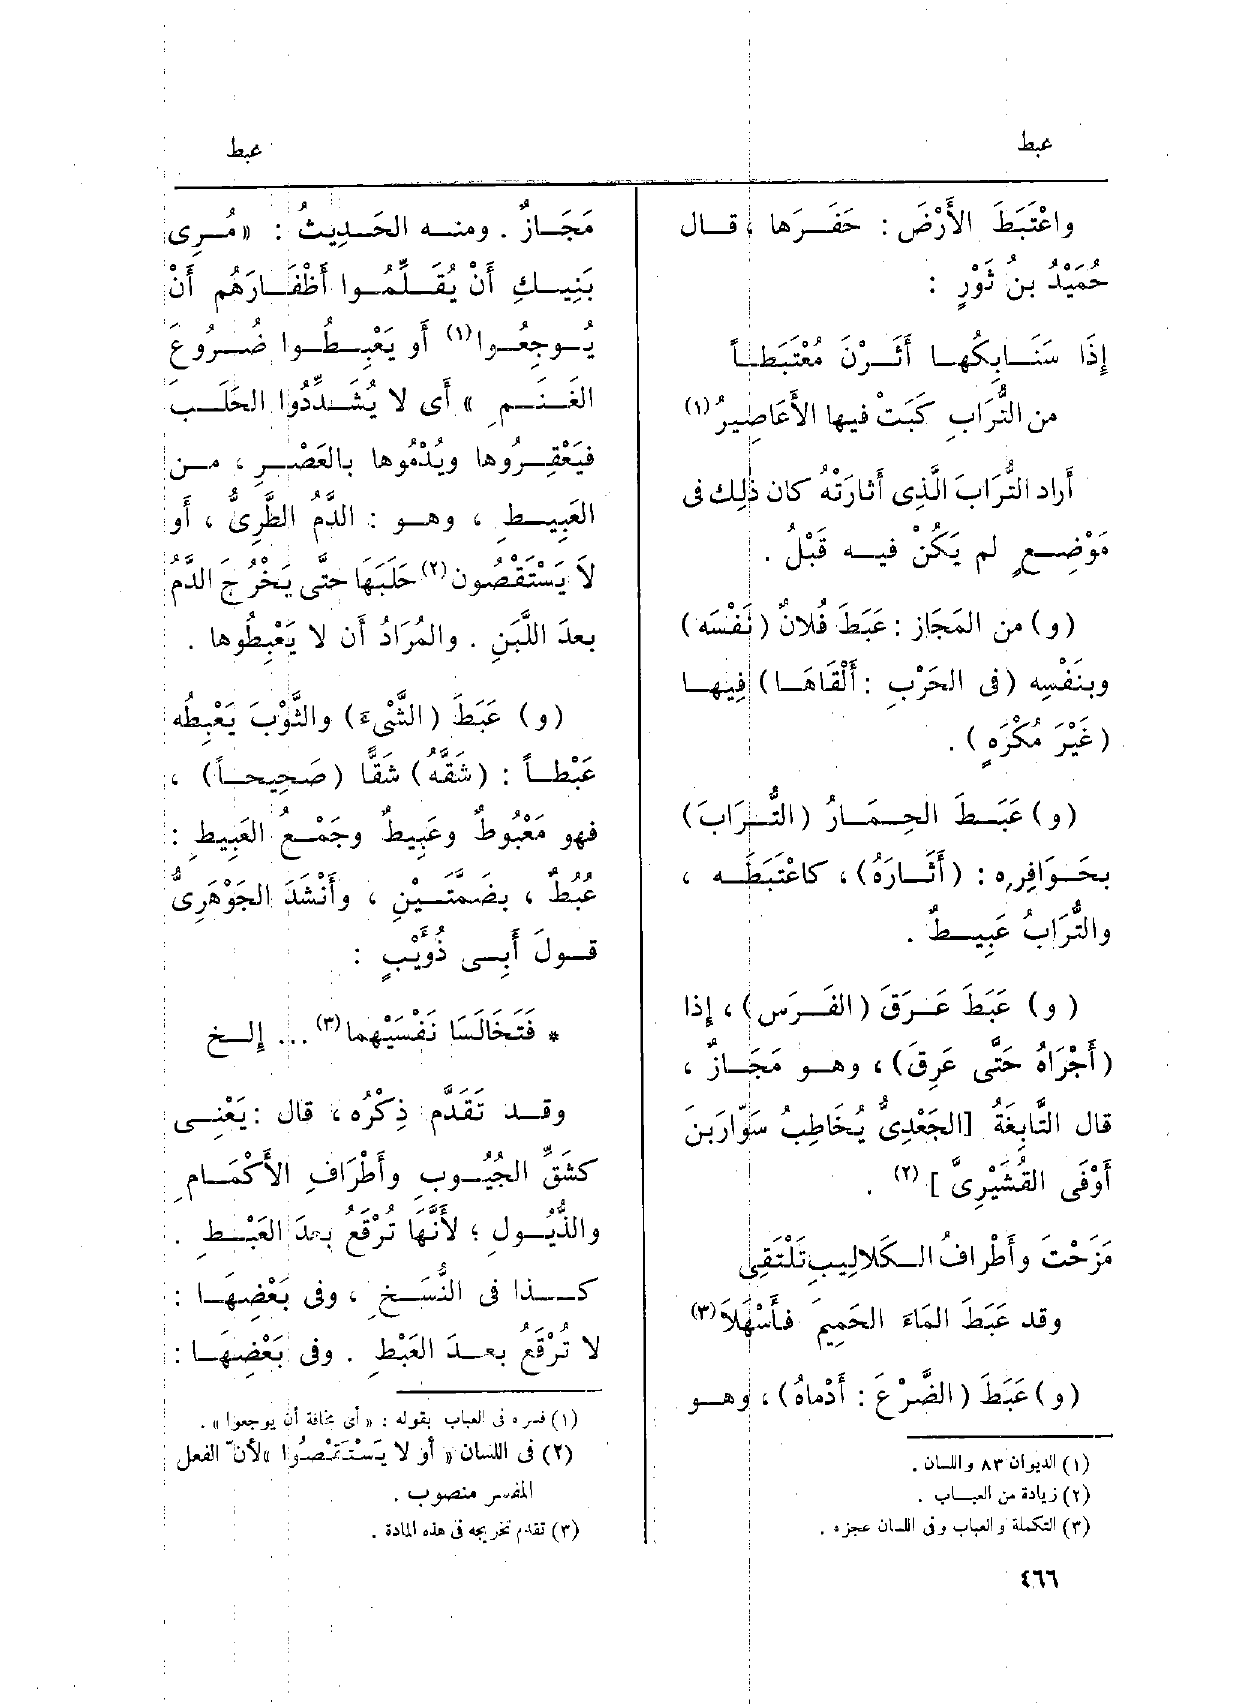 عبط
عبط
واعْتَبَطَ الأَرْضَ : حَفَـرَها ، قـال
حُمَيْدُ بنُ ثَوْرٍ :
إِذَا سَنَـابِكُهـا أَثَـرْنَ مُعْتَبَطـاً
من التُّرَابِ كَبَتْ فيها الأَعَاصِيرُ (١)
أَراد التُّرَابَ الَّذِى أَثارَتْهُ كان ذٰلِك فى
مَوْضِـعٍ لم يَكُنْ فيـه قَبْلُ .
(و) من المَجَاز : عَبَطَ فُلانٌ (نَفْسَه)
وبنَفْسِه (فى الحَرْبِ : أَلْقَاهَـا) فِيهـا
(غَيْرَ مُكْرَهٍ) .
(و) عَبَـطَ الحِمَـارُ (التُّـرَابَ)
بحَـوَافِرِه : (أَثَـارَهُ) ، كاعْتَبَطَـه ،
والتُّرَابُ عَبِيـطٌ .
(و) عَبَطَ عَـرَقَ (الفَـرَسِ) ، إِذا
(أَجْرَاهُ حَتَّى عَرِقَ) ، وهـو مَجَـازٌ ،
قال النَّابِغَةُ [الجَعْدِىُّ يُخَاطِبُ سَوّارَ بنَ
أَوْفَى القُشَيْرِىَّ ] (٢) .
مَزَحْتَ وأَطْرافُ الـكَلالِيبِ تَلْتَقِى
وقد عَبَطَ المَاءَ الحَمِيمَ فأَسْهَلاَ (٣)
(و) عَبَطَ (الضَّرْعَ : أَدْماهُ) ، وهـو
(١) الديوان ٨٣ واللسان .
(٢) زيادة من العبـاب .
(٣) التكملة والعباب وفى اللسان عجزه .
مَجَـازٌ . ومنـه الحَـدِيثُ : « مُـرِى
بَنِيـكِ أَنْ يُقَـلِّمُـوا أَظْفَـارَهُم أَنْ
يُـوجِعُـوا (١) أَو يَعْبِـطُـوا ضُـرُوعَ
الغَـنَـمِ » أَى لا يُشَـدِّدُوا الحَلَـبَ
فيَعْقِـرُوها ويُدْمُوها بالعَصْـرِ ، مـن
العَبِيـطِ ، وهـو : الدَّمُ الطَّرِىُّ ، أَو
لاَ يَسْتَقْصُون (٢) حَلَبَهَا حتَّى يَخْرُجَ الدَّمُ
بعدَ اللَّبَنِ . والمُرَادُ أَن لا يَعْبِطُوها .
(و) عَبَطَ (الشَّىْءَ) والثَّوْبَ يَعْبِطُه
عَبْطـاً : (شَقَّهُ) شَقًّا (صَحِيحـاً) ،
فهو مَعْبُوطٌ وعَبِيطٌ وجَمْعُ العَبِيطِ :
عُبُطٌ ، بضَمَّتَـيْنِ ، وأَنْشَدَ الجَوْهَرِىُّ
قـولَ أَبِـى ذُوَيْبٍ :
* فَتَخَالَسَا نَفْسَيْهِما (٣) ... إلـخ
وقـد تَقَدَّم ذِكْرُه ، قال : يَعْنِـى
كشَقِّ الجُيُـوبِ وأَطْرَافِ الأَكْمَـامِ
والذُّيُـولِ ؛ لأَنَّهَا تُرْقَعُ بعدَ العَبْـطِ .
كـذا فى النُّسَخِ ، وفى بَعْضِهَـا :
لا تُرْقَعُ بعـدَ العَبْطِ . وفى بَعْضِهَـا :
(١) فسره فى العباب بقوله : « أى مخافة أن يوجعوا » .
(٢) فى اللسان « أو لا يَسْتَقْصُوا » لأن الفعل
المفسر منصوب .
(٣) تقدم تخريجه فى هذه المادة .
٤٦٦